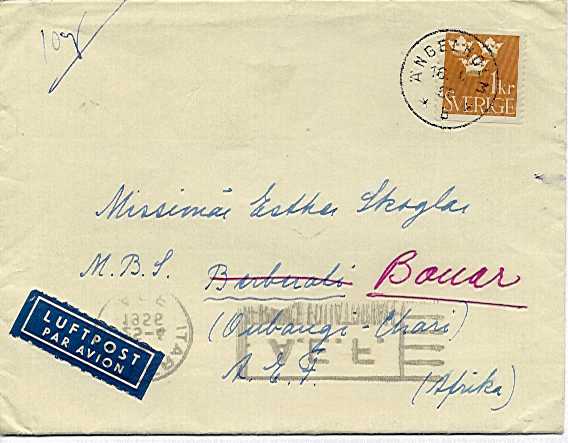 10g
ÄNGELHOLM
16
b
1 kr
SVERIGE
Missimär Esther Skoglar
M.B.S. Berberati Bouar
(Oubangi-Chari)
A.E.F. (Afrika)
LUFTPOST
PAR AVION
A.E.F.